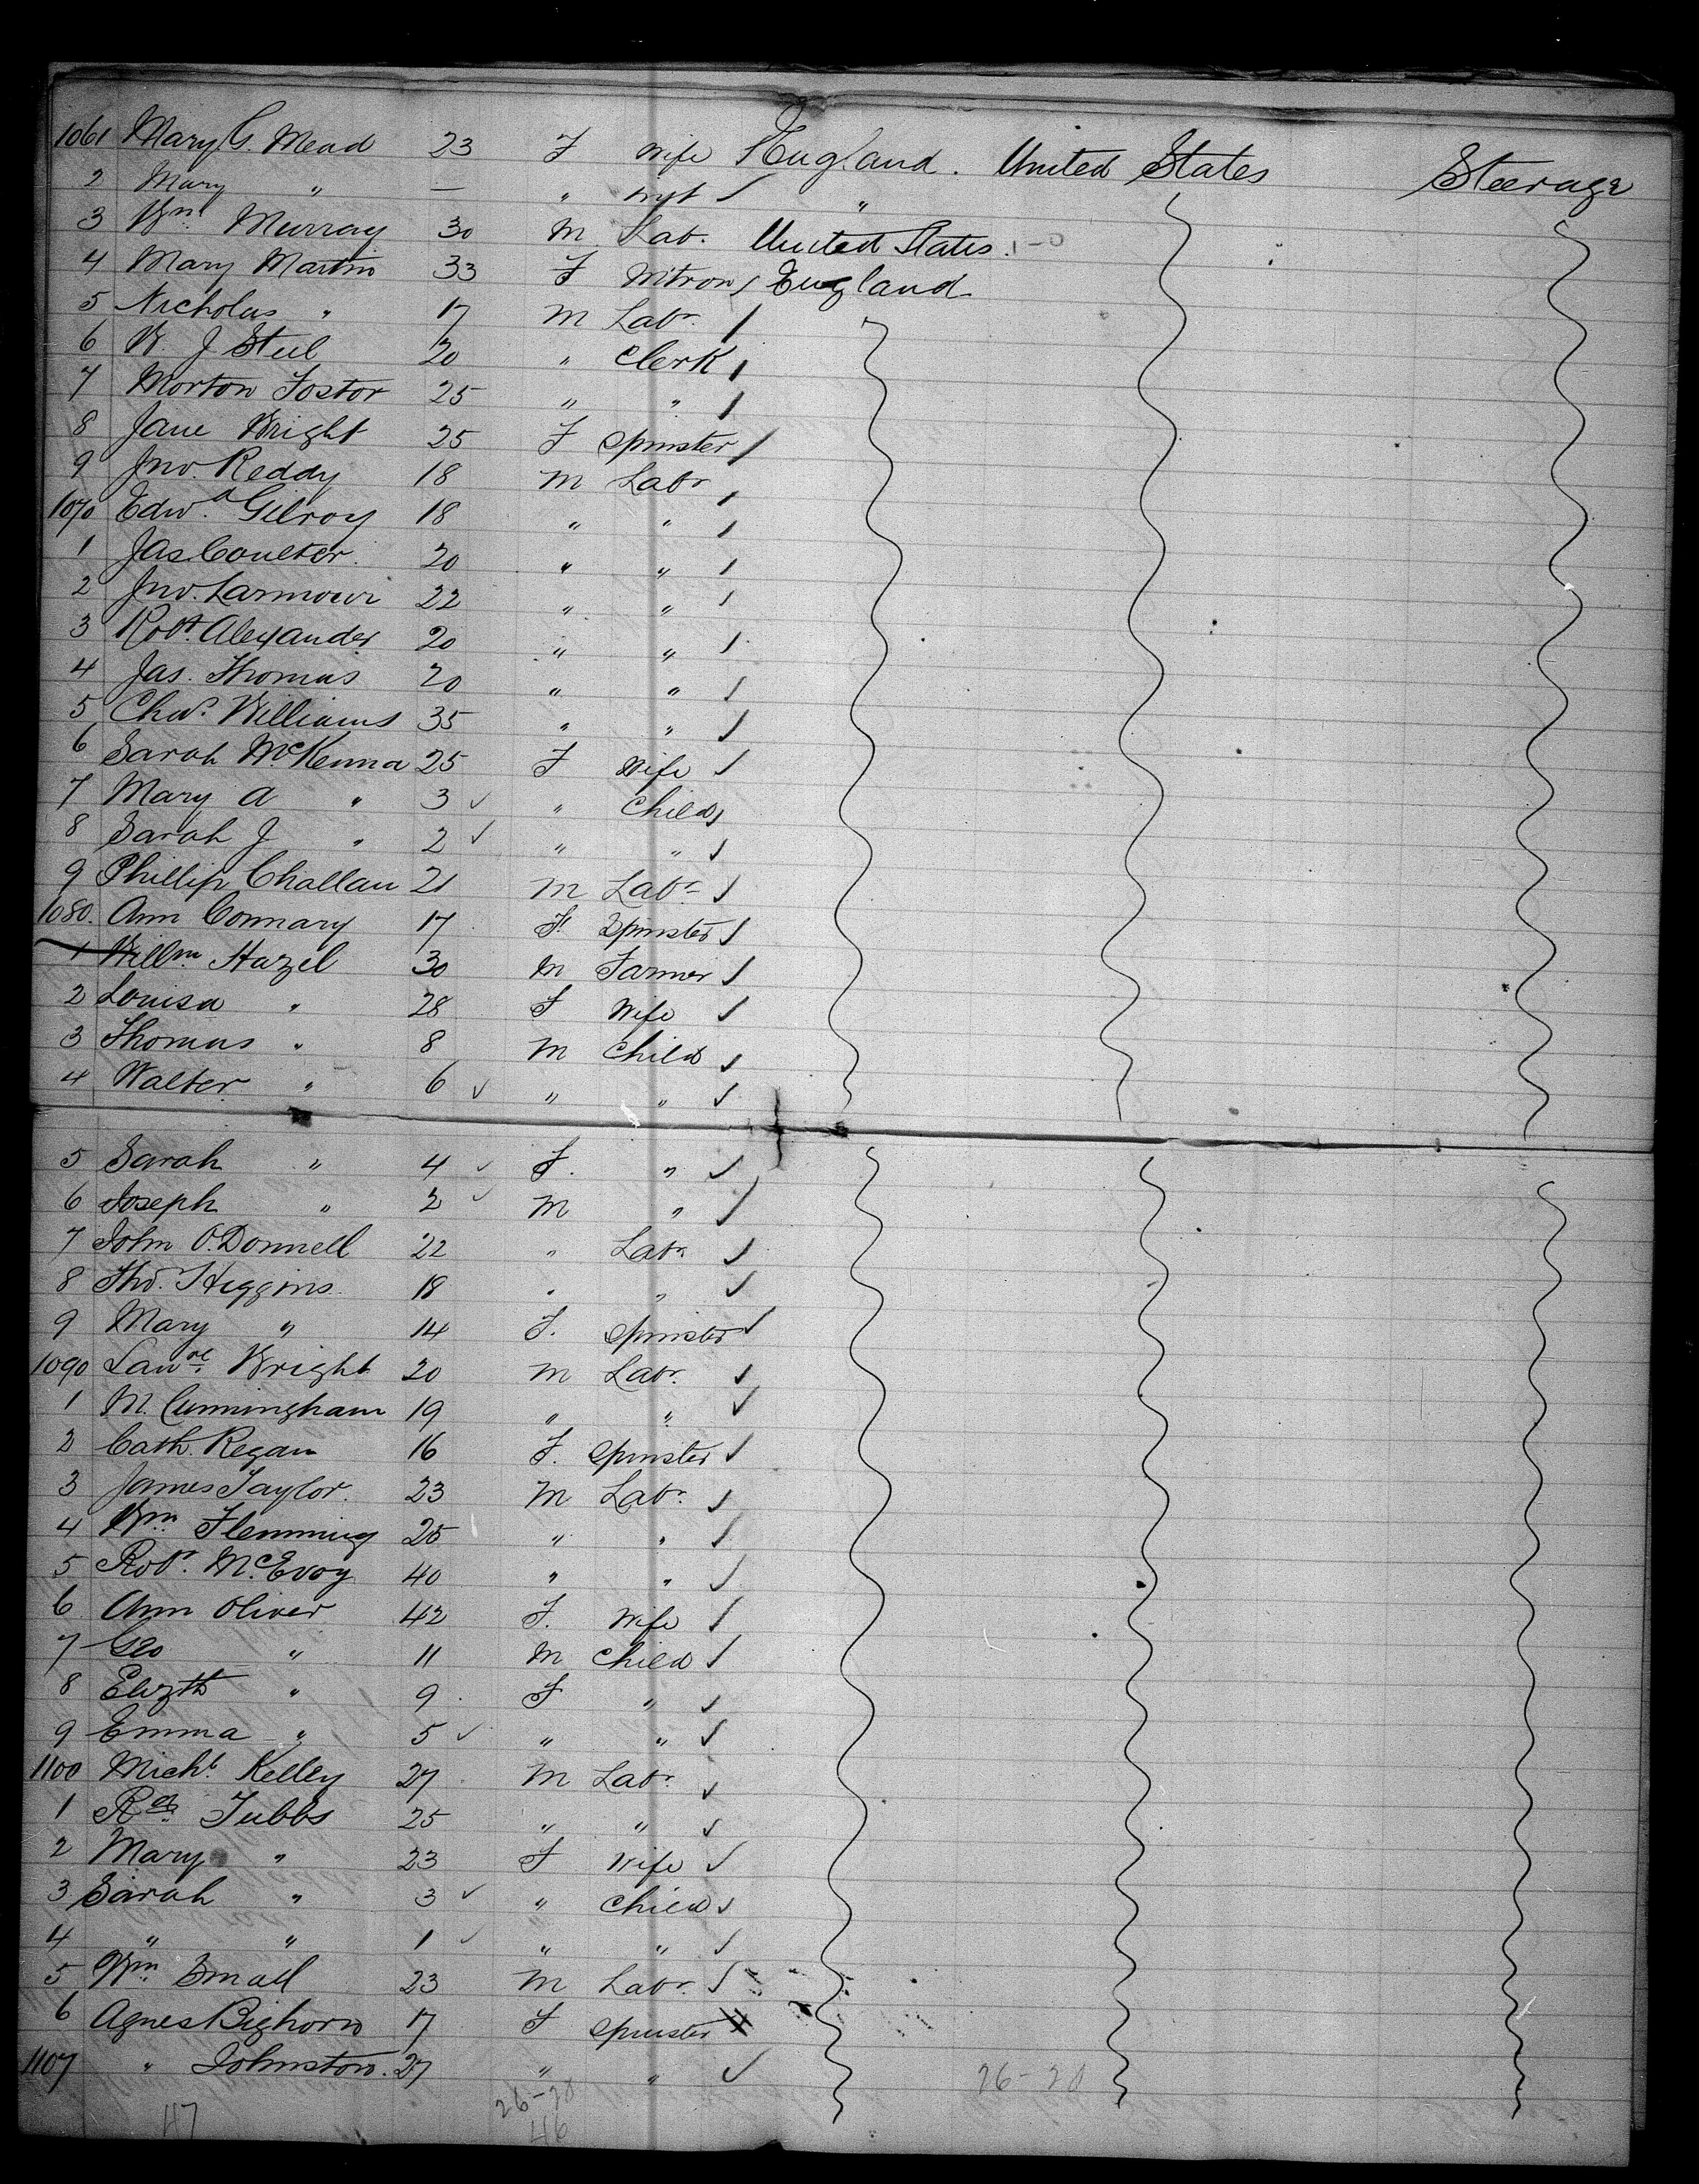 1061 Mary G. Mead 23 F Wife England. United States Steerage
2 Mary " — " Inft "
3 Wm. Murray 30 M Lab. United States. 1-0
4 Mary Martin 33 F M'tron England
5 Nicholas " 17 M Labr.
6 W. J Steel 20 " Clerk
7 Morton Fostor 25 " "
8 Jane Wright 25 F Spinster
9 Jno. Reddy 18 M Labr
1070 Edwd. Gilroy 18 " "
1 Jas. Coulter. 20 " "
2 Jno. Larmour 22 " "
3 Robt. Alexander 20 " "
4 Jas. Thomas 20 " "
5 Chas. Williams 35 " "
6 Sarah McKenna 25 F Wife
7 Mary A " 3 " Child
8 Sarah J " 2 " "
9 Phillip Challan 21 M Labr
1080. Ann Connary 17 F Spinster
1 Willm Hazel 30 M Farmer
2 Louisa " 28 F Wife
3 Thomas " 8 M Child
4 Walter " 6 " "
5 Sarah " 4 F. "
6 Joseph " 2 M "
7 John O'Donnell 22 " Labr
8 Tho. Higgins 18 " "
9 Mary " 14 F. Spinster
1090 Lawre. Wright 20 M Labr.
1 M. Cunningham 19 " "
2 Cath. Regan 16 F. Spinster
3 James Taylor. 23 M Labr.
4 Wm. Flemming 25 " "
5 Robt. McEvoy 40 " "
6 Ann Oliver 42 F. Wife
7 Geo " 11 M Child
8 Elizth " 9 F "
9 Emma " 5 " "
1100 Michl. Kelley 27 M Labr.
1 Rd. Tubbs 25 " "
2 Mary " 23 F Wife
3 Sarah " 3 " Child
4 " " 1 " "
5 Wm. Small 23 M Labr.
6 Agnes Bighorn 17 F Spinster
1107 " Johnston. 27 " "
26-20 26-20
47 46